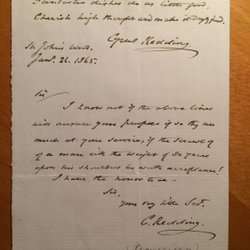 dishes do us little good.
Cherish high thought and make it
Cyrus Redding.
St. John's Wood.
Jany. 26. 1865.
Sir
I know not if the above lines
will answer your purpose, if so they are
much at your service, if the
of a man with the weight of 80 years
upon his shoulders be worth acceptance!
I have the honor to be —
Sir.
Your very Obt Servt,
C. Redding.